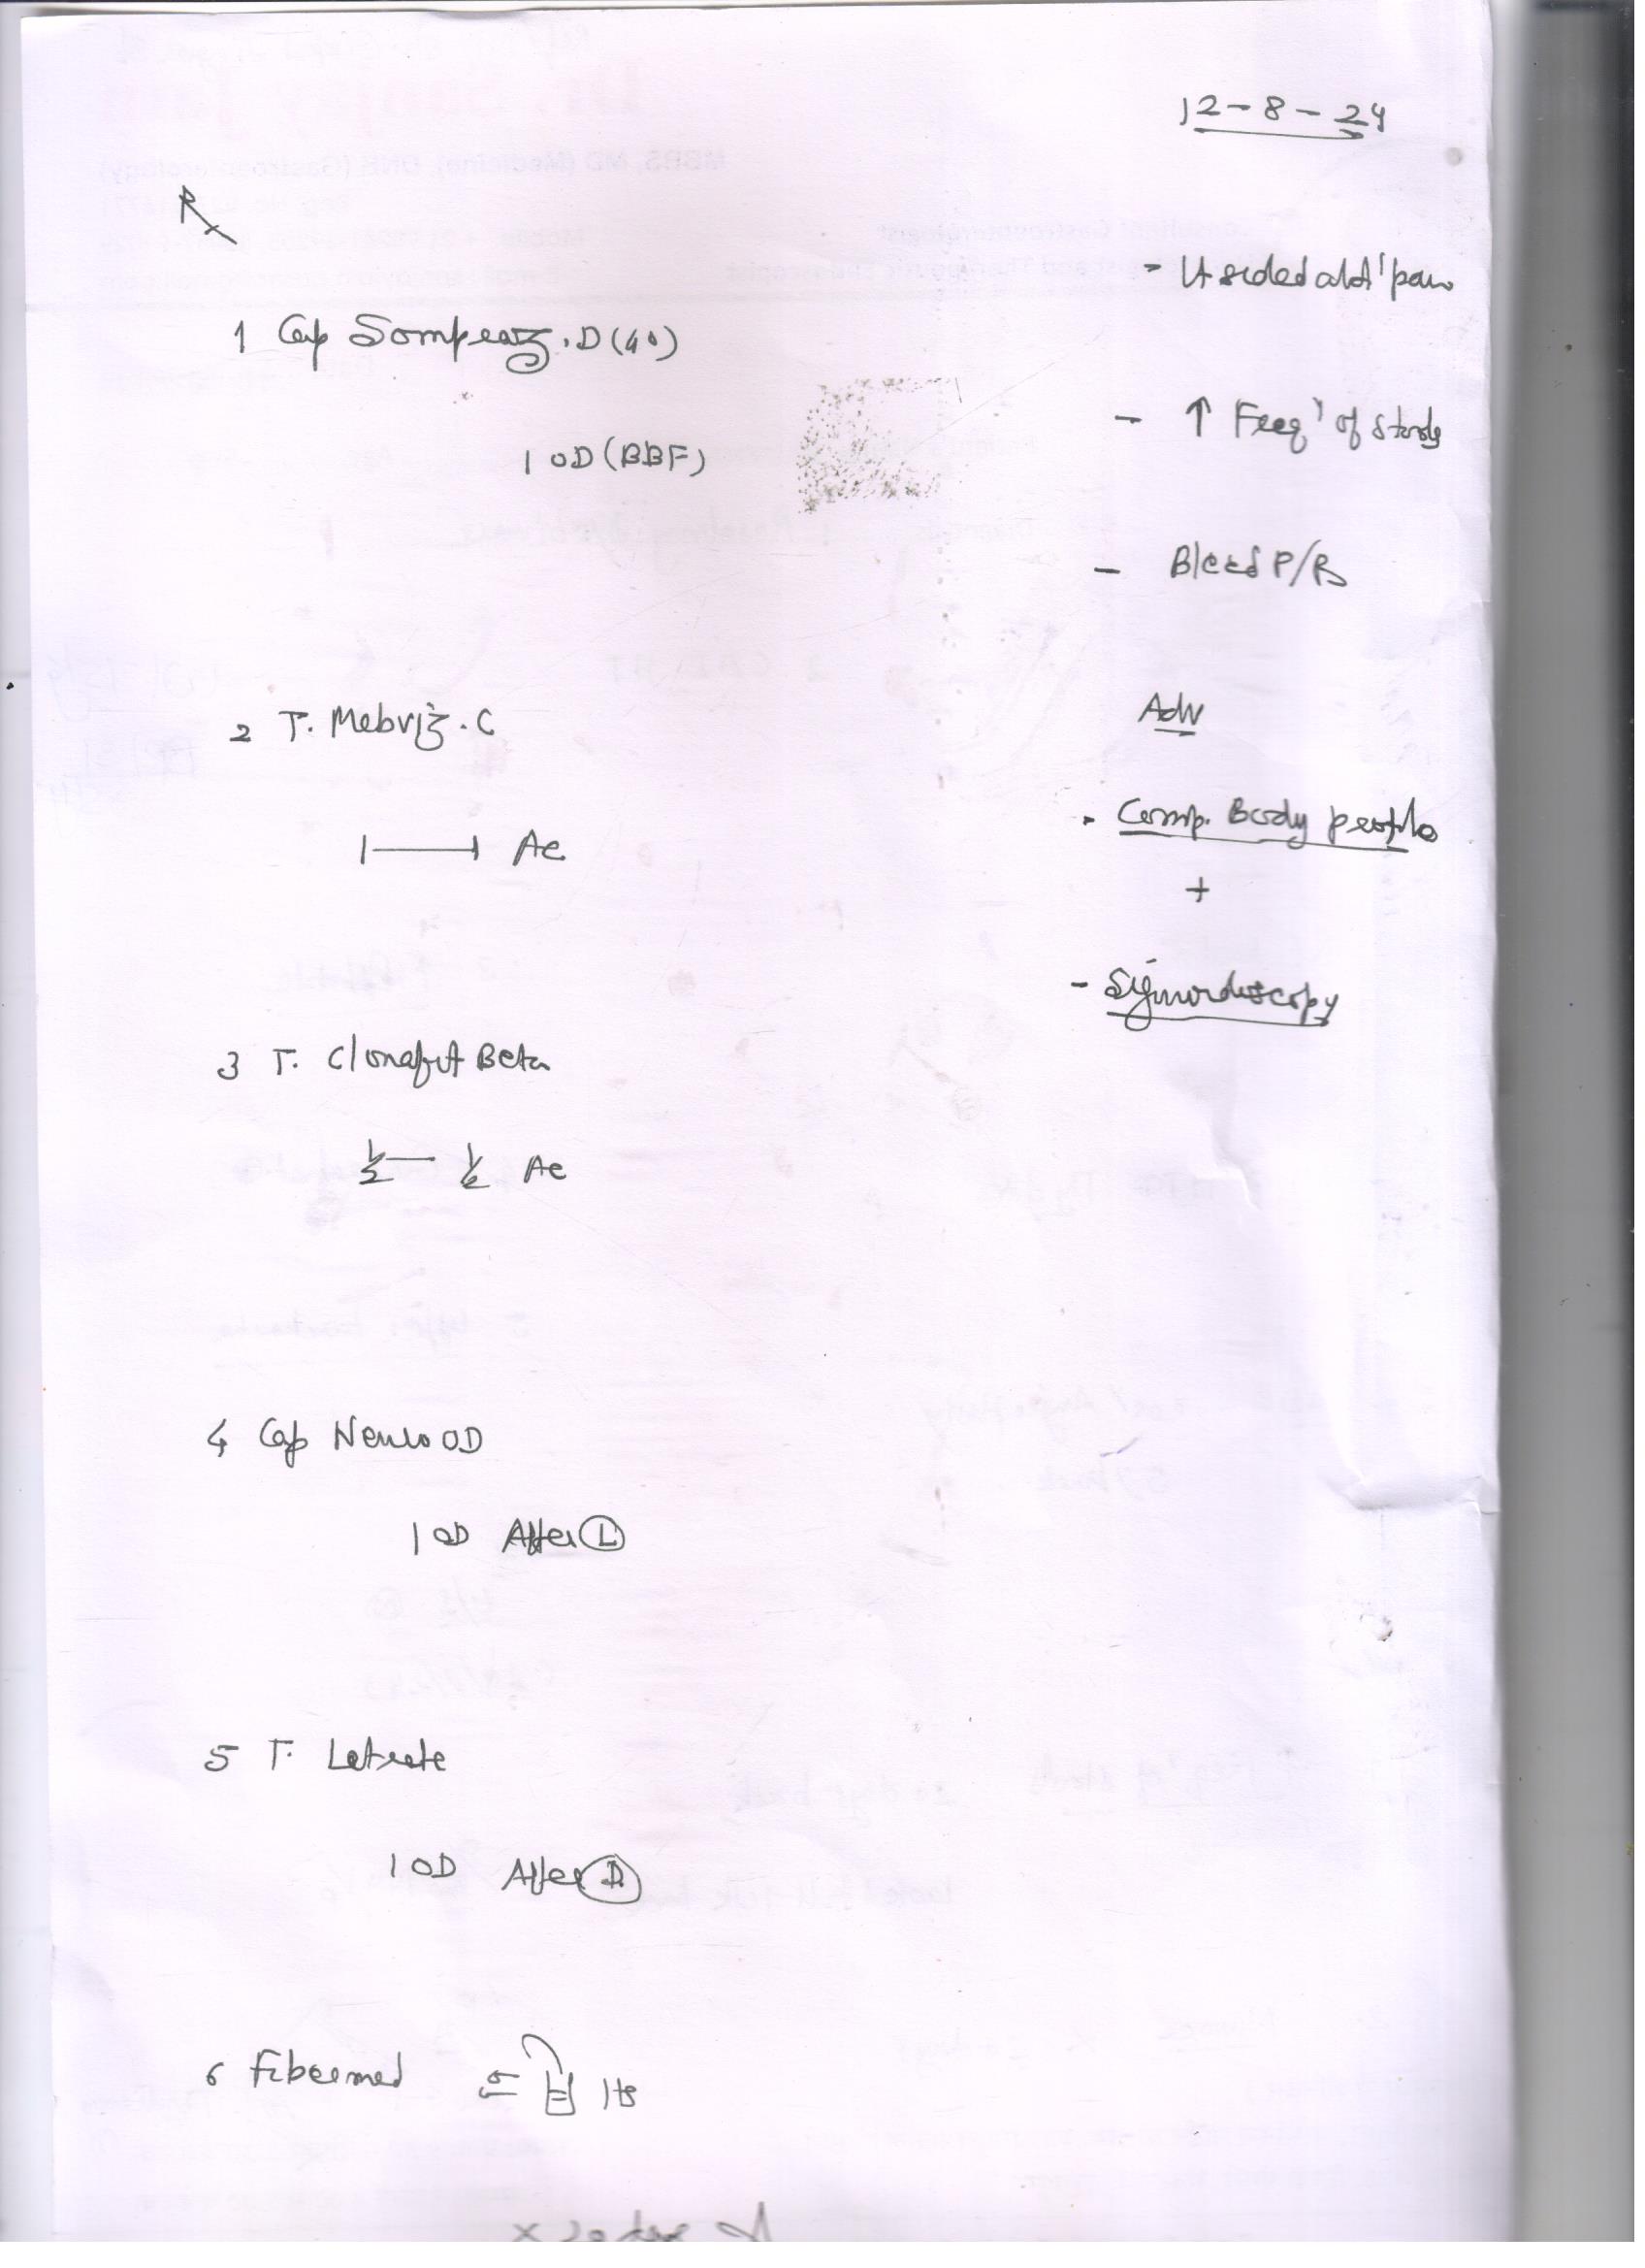 12-8-24
Rx
- Lt sided abd' pain
1 Cap Sompraz.D (40)
- ↑ Freq' of stools
1 OD (BBF)
- Bleed P/R
2 T. Mebriz.C
Adv
1 — 1 Ac
- Comp. Body profile
+
- Sigmoidoscopy
3 T. Clonafit Beta
1/2 — 1/2 Ac
4 Cap OD
1 OD After (L)
5 T.
1 OD After (D)
6 Fibermed Hs